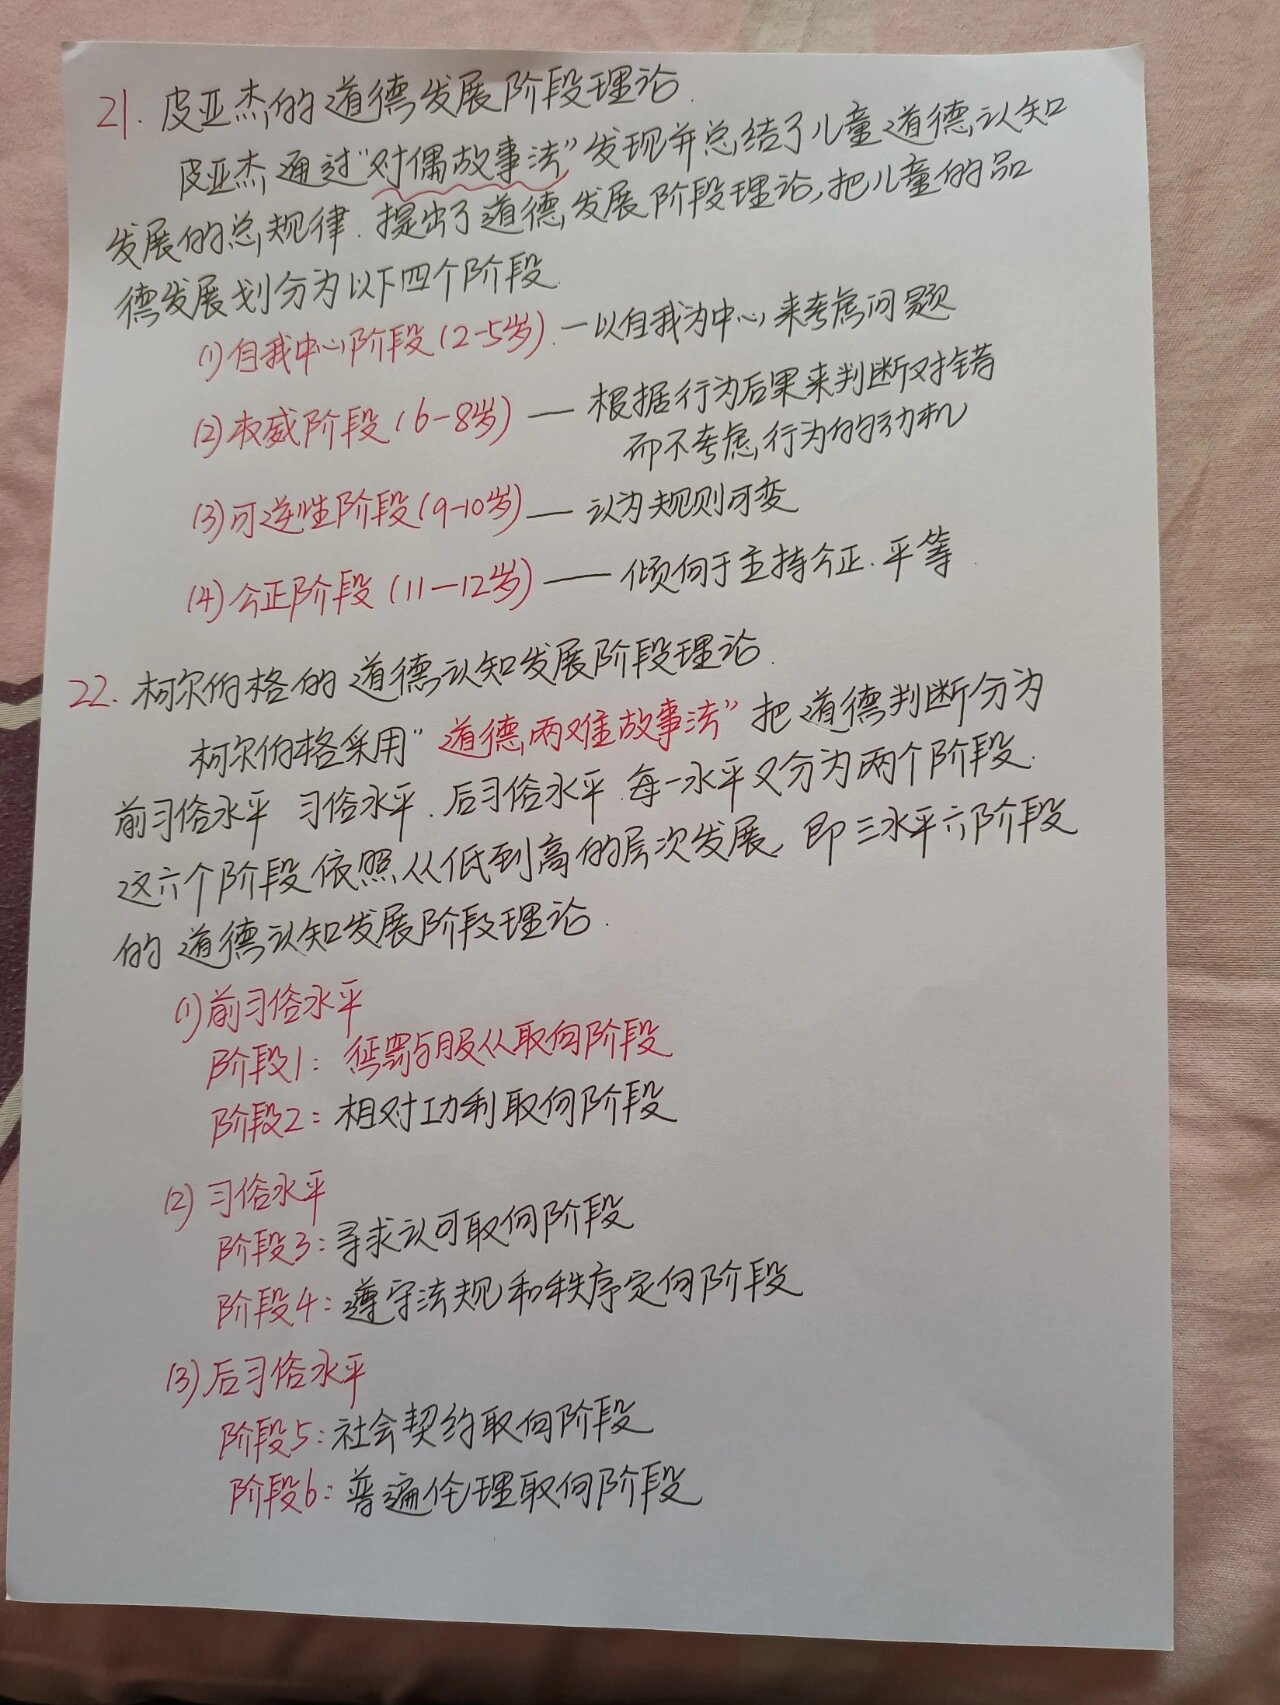 21. 皮亚杰的道德发展阶段理论.
皮亚杰通过"对偶故事法"发现并总结了儿童道德认知
发展的总规律.提出了道德发展阶段理论,把儿童的品
德发展划分为以下四个阶段.
(1)自我中心阶段(2-5岁).—以自我为中心来考虑问题
(2)权威阶段(6-8岁)—根据行为后果来判断对错
而不考虑行为的动机
(3)可逆性阶段(9-10岁)—认为规则可变
(4)公正阶段(11-12岁)—倾向于主持公正.平等
22.柯尔伯格的道德认知发展阶段理论.
柯尔伯格采用"道德两难故事法"把道德判断分为
前习俗水平 习俗水平.后习俗水平.每一水平又分为两个阶段.
这六个阶段依照从低到高的层次发展.即三水平六阶段
的道德认知发展阶段理论.
(1)前习俗水平
阶段1:惩罚与服从取向阶段
阶段2:相对功利取向阶段
(2)习俗水平
阶段3:寻求认可取向阶段
阶段4:遵守法规和秩序定向阶段
(3)后习俗水平
阶段5:社会契约取向阶段
阶段6:普遍伦理取向阶段